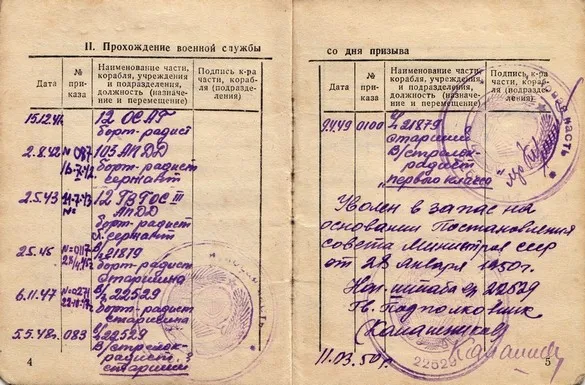 II. Прохождение военной службы
Дата
№ при- каза
Наименование части, корабля, учреждения и подразделения, должность (назначе- ние и перемещение)
Подпись к-ра части, кораб- ля (подразде- ления)
15.12.41.
12 ОСАГ
борт-радист
2.8.42
№ 087
103 АПДД
борт-радист
сержант
2.5.43
АПДД
борт-радист
сержант
2.5.46
№ 0117
борт-радист
старшина
6.11.47
в/ч 22529
борт-радист
старшина
5.5.48г.
083
в/ч 22529
В/стрелок-
радист
старшина
4
со дня призыва
Дата
№ при- каза
Наименование части, корабля, учреждения и подразделения, должность (назначе- ние и перемещение)
Подпись к-ра части, кораб- ля (подразде- ления)
0100
в/ч 21879
старшина
В/стрелок-
радист
"первого класса"
Уволен в запас на
основании Постановления
совета Министров ссср
от 28 января 1950г.
Нач. штаба в/ч 22529
Гв. Подполковник
11.03.50г.
22529
5